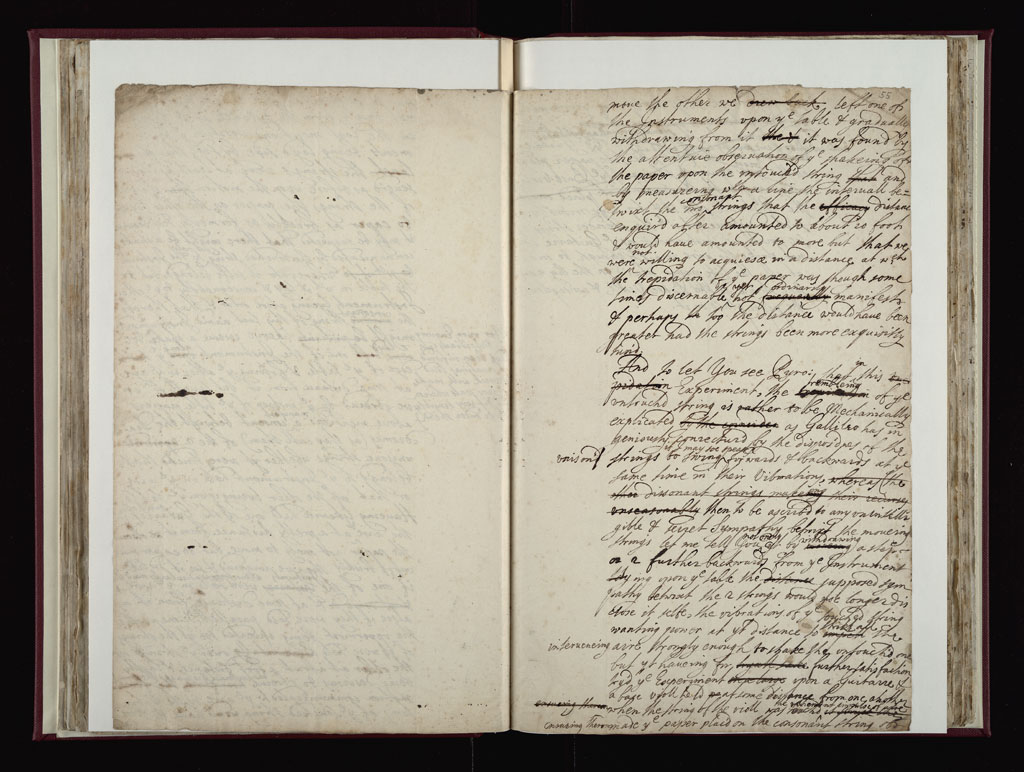 55
move the other we drew back, left one of
the Instruments upon yᵉ table & gradually
withdrawing from it it was found by
the attentive observation of yᵉ shakeing of
the paper upon the untouch'd string and
by measureing wᵗʰ a line the intervall be=
twixt the two consonant strings that the efficacy distance
enquir'd after amounted to about 10 foot
& would have amounted to more but that we
were not willing to acquiesce in a distance at wᶜʰ
the trepidation of yᵉ paper was though some
times discernable yet not ordinarily manifest
& perhaps too the distance would have been
greater had the strings been more exquisitly
tun'd.
And to let You see Pyro: that in this
Experiment, the trembling of yᵉ
untouch'd string is rather to be Mechanically
explicated as Gallileo has in
geniously conjectur'd by the disposednes of the
unison strings to swing if I may so speak forwards & backwards at yᵉ
same time in their Vibrations, whereas the
other dissonant strings makeing their recurses
unseasonably then to be ascrib'd to any unintelli
gible & secret Sympathy betwixt the moveing
strings let me tell You yᵗ by withdrawing a step
or 2 further backwards from yᵉ Instrument
lying upon yᵉ table the distance supposed sym
pathy betwixt the 2 strings would not longer dis
close it selfe, the vibrations of yᵉ touch'd string
wanting power at yᵗ distance to shake the
interveneing aire strongly enough to shake the untouch'd one
but yᵗ haveing for further satisfaction
try'd yᵉ Experiment upon a Guitarre &
a base violl held at some distance from one another
when the string of the violl was
ensueing thereon made yᵉ paper plac'd on the consonant string of